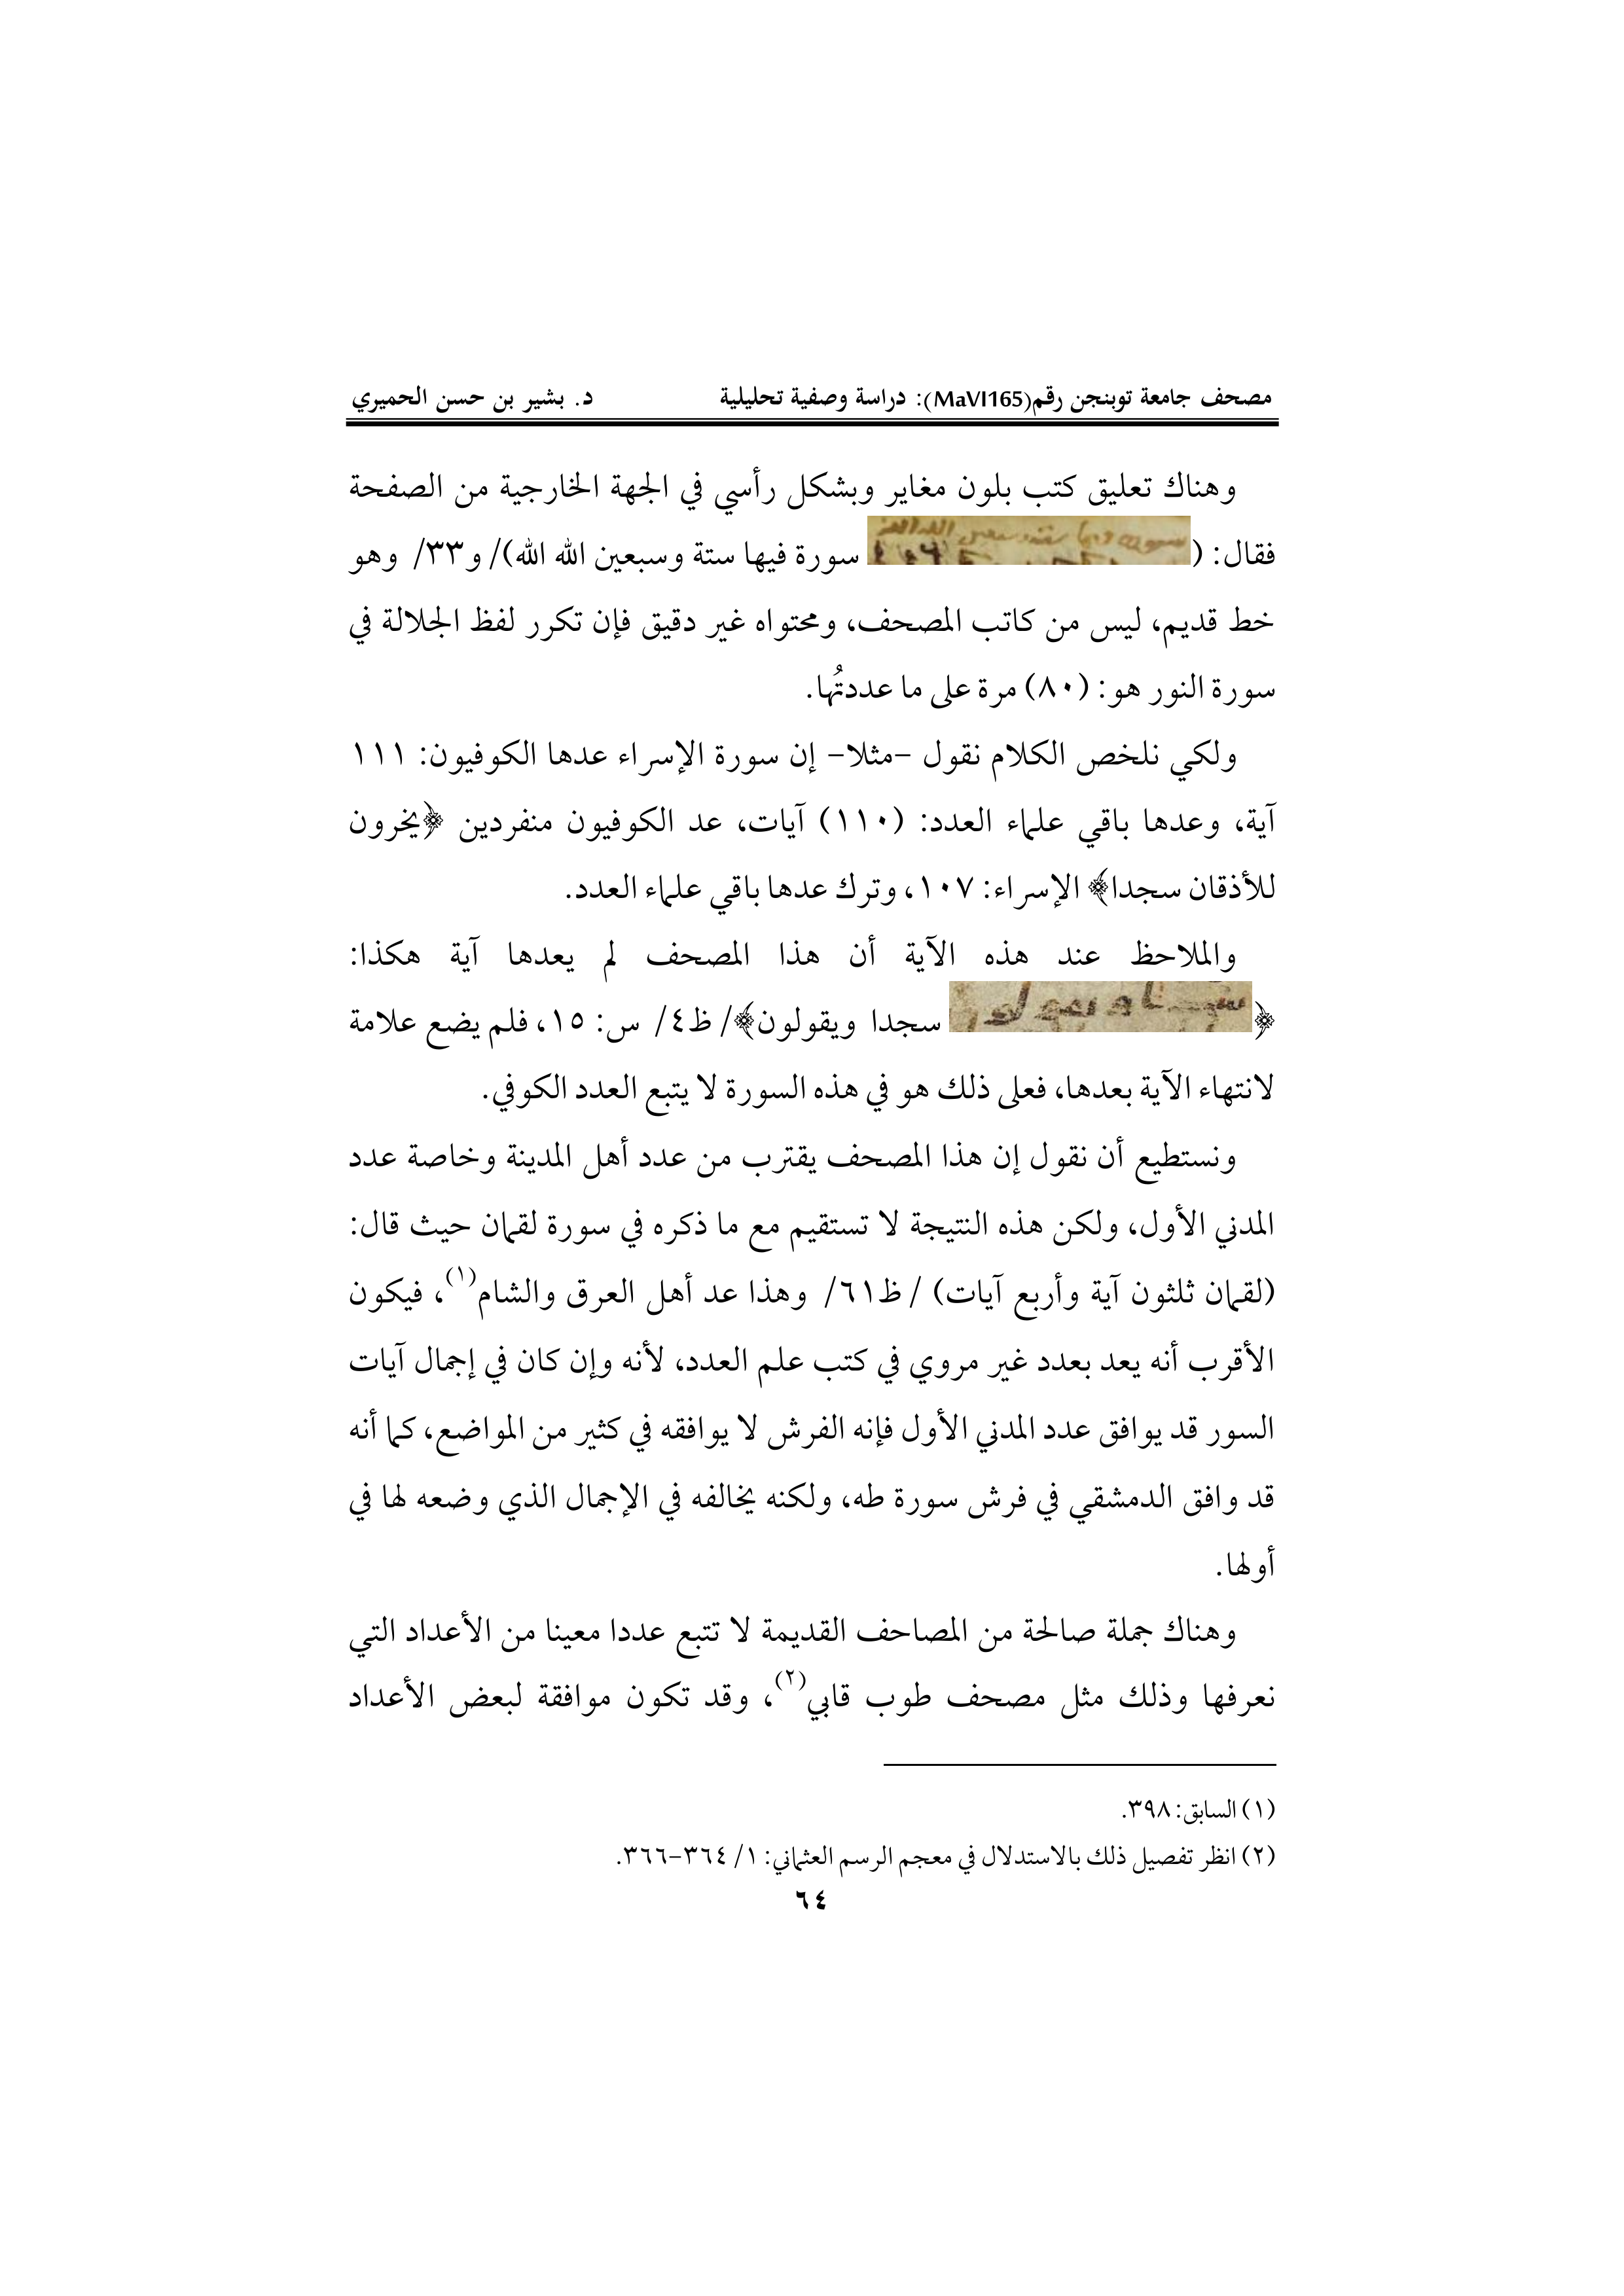 مصحف جامعة توبنجن رقم(MaVI165): دراسة وصفية تحليلية د. بشير بن حسن الحميري
وهناك تعليق كتب بلون مغاير وبشكل رأسي في الجهة الخارجية من الصفحة
فقال: ( سورة فيها ستة وسبعين الله الله)/ و٣٣/ وهو
خط قديم، ليس من كاتب المصحف، ومحتواه غير دقيق فإن تكرر لفظ الجلالة في
سورة النور هو: (٨٠) مرة على ما عددتُها.
ولكي نلخص الكلام نقول –مثلا– إن سورة الإسراء عدها الكوفيون: ١١١
آية، وعدها باقي علماء العدد: (١١٠) آيات، عد الكوفيون منفردين ﴿يخرون
للأذقان سجدا﴾ الإسراء: ١٠٧، وترك عدها باقي علماء العدد.
والملاحظ عند هذه الآية أن هذا المصحف لم يعدها آية هكذا:
﴿ سجدا ويقولون﴾/ ظ٤/ س: ١٥، فلم يضع علامة
لانتهاء الآية بعدها، فعلى ذلك هو في هذه السورة لا يتبع العدد الكوفي.
ونستطيع أن نقول إن هذا المصحف يقترب من عدد أهل المدينة وخاصة عدد
المدني الأول، ولكن هذه النتيجة لا تستقيم مع ما ذكره في سورة لقمان حيث قال:
(لقمان ثلثون آية وأربع آيات) / ظ٦١/ وهذا عد أهل العرق والشام(١)، فيكون
الأقرب أنه يعد بعدد غير مروي في كتب علم العدد، لأنه وإن كان في إجمال آيات
السور قد يوافق عدد المدني الأول فإنه الفرش لا يوافقه في كثير من المواضع، كما أنه
قد وافق الدمشقي في فرش سورة طه، ولكنه يخالفه في الإجمال الذي وضعه لها في
أولها.
وهناك جملة صالحة من المصاحف القديمة لا تتبع عددا معينا من الأعداد التي
نعرفها وذلك مثل مصحف طوب قابي(٢)، وقد تكون موافقة لبعض الأعداد
(١) السابق: ٣٩٨.
(٢) انظر تفصيل ذلك بالاستدلال في معجم الرسم العثماني: ١/ ٣٦٤–٣٦٦.
٦٤